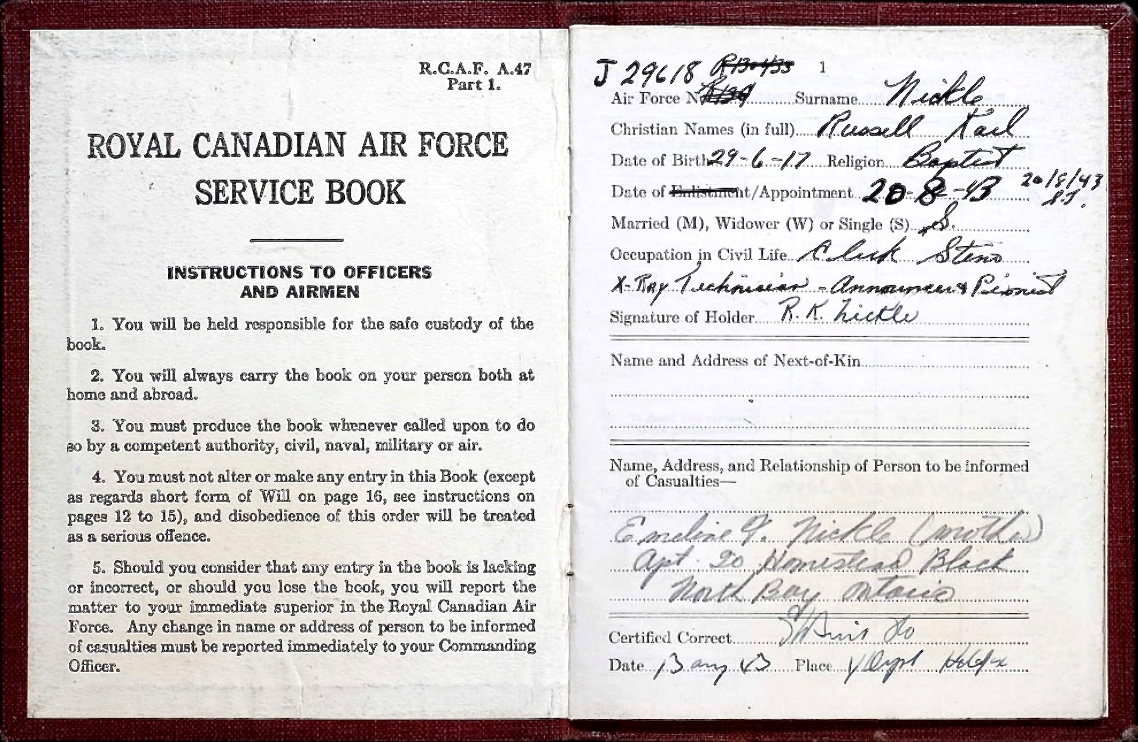 R.C.A.F. A.47
Part 1.
ROYAL CANADIAN AIR FORCE
SERVICE BOOK
INSTRUCTIONS TO OFFICERS
AND AIRMEN
1. You will be held responsible for the safe custody of the
book.
2. You will always carry the book on your person both at
home and abroad.
3. You must produce the book whenever called upon to do
so by a competent authority, civil, naval, military or air.
4. You must not alter or make any entry in this Book (except
as regards short form of Will on page 16, see instructions on
pages 12 to 15), and disobedience of this order will be treated
as a serious offence.
5. Should you consider that any entry in the book is lacking
or incorrect, or should you lose the book, you will report the
matter to your immediate superior in the Royal Canadian Air
Force. Any change in name or address of person to be informed
of casualties must be reported immediately to your Commanding
Officer.
J 29618 1
Air Force Surname Nickle
Christian Names (in full) Russell Karl
Date of Birth 29-6-17 Religion Baptist
Date of Enlistment/Appointment 20-8-43 20/8/43
Married (M), Widower (W) or Single (S) S.
Occupation in Civil Life Clerk Steno
X-Ray Technician - Announcer & Pianist
Signature of Holder R. K. Nickle
Name and Address of Next-of-Kin
Name, Address, and Relationship of Person to be informed
of Casualties—
Emeline Nickle (mother)
Apt. 20 Homestead Block
North Bay Ontario
Certified Correct
Date 43 Place